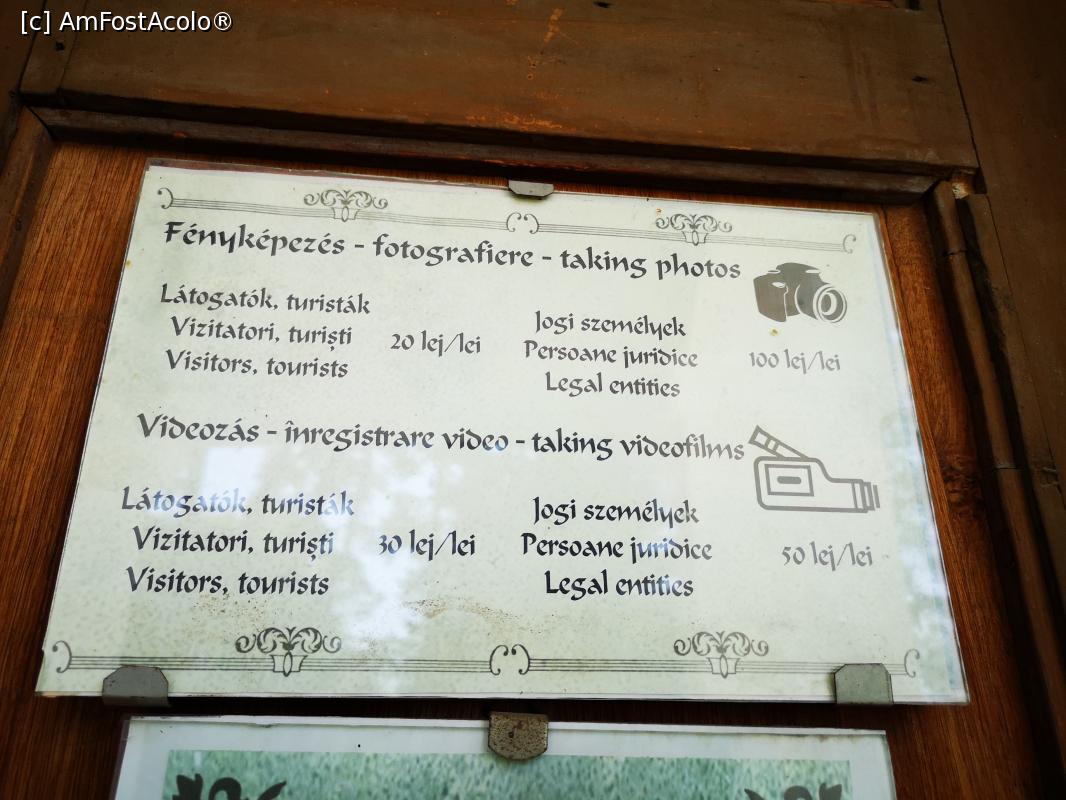 [c] AmFostAcolo®
Fényképezés - fotografiere - taking photos
Látogatók, turisták
Vizitatori, turiști 20 lej/lei
Visitors, tourists
Jogi személyek
Persoane juridice 100 lej/lei
Legal entities
Videozás - înregistrare video - taking videofilms
Látogatók, turisták
Vizitatori, turiști 30 lej/lei
Visitors, tourists
Jogi személyek
Persoane juridice 50 lej/lei
Legal entities